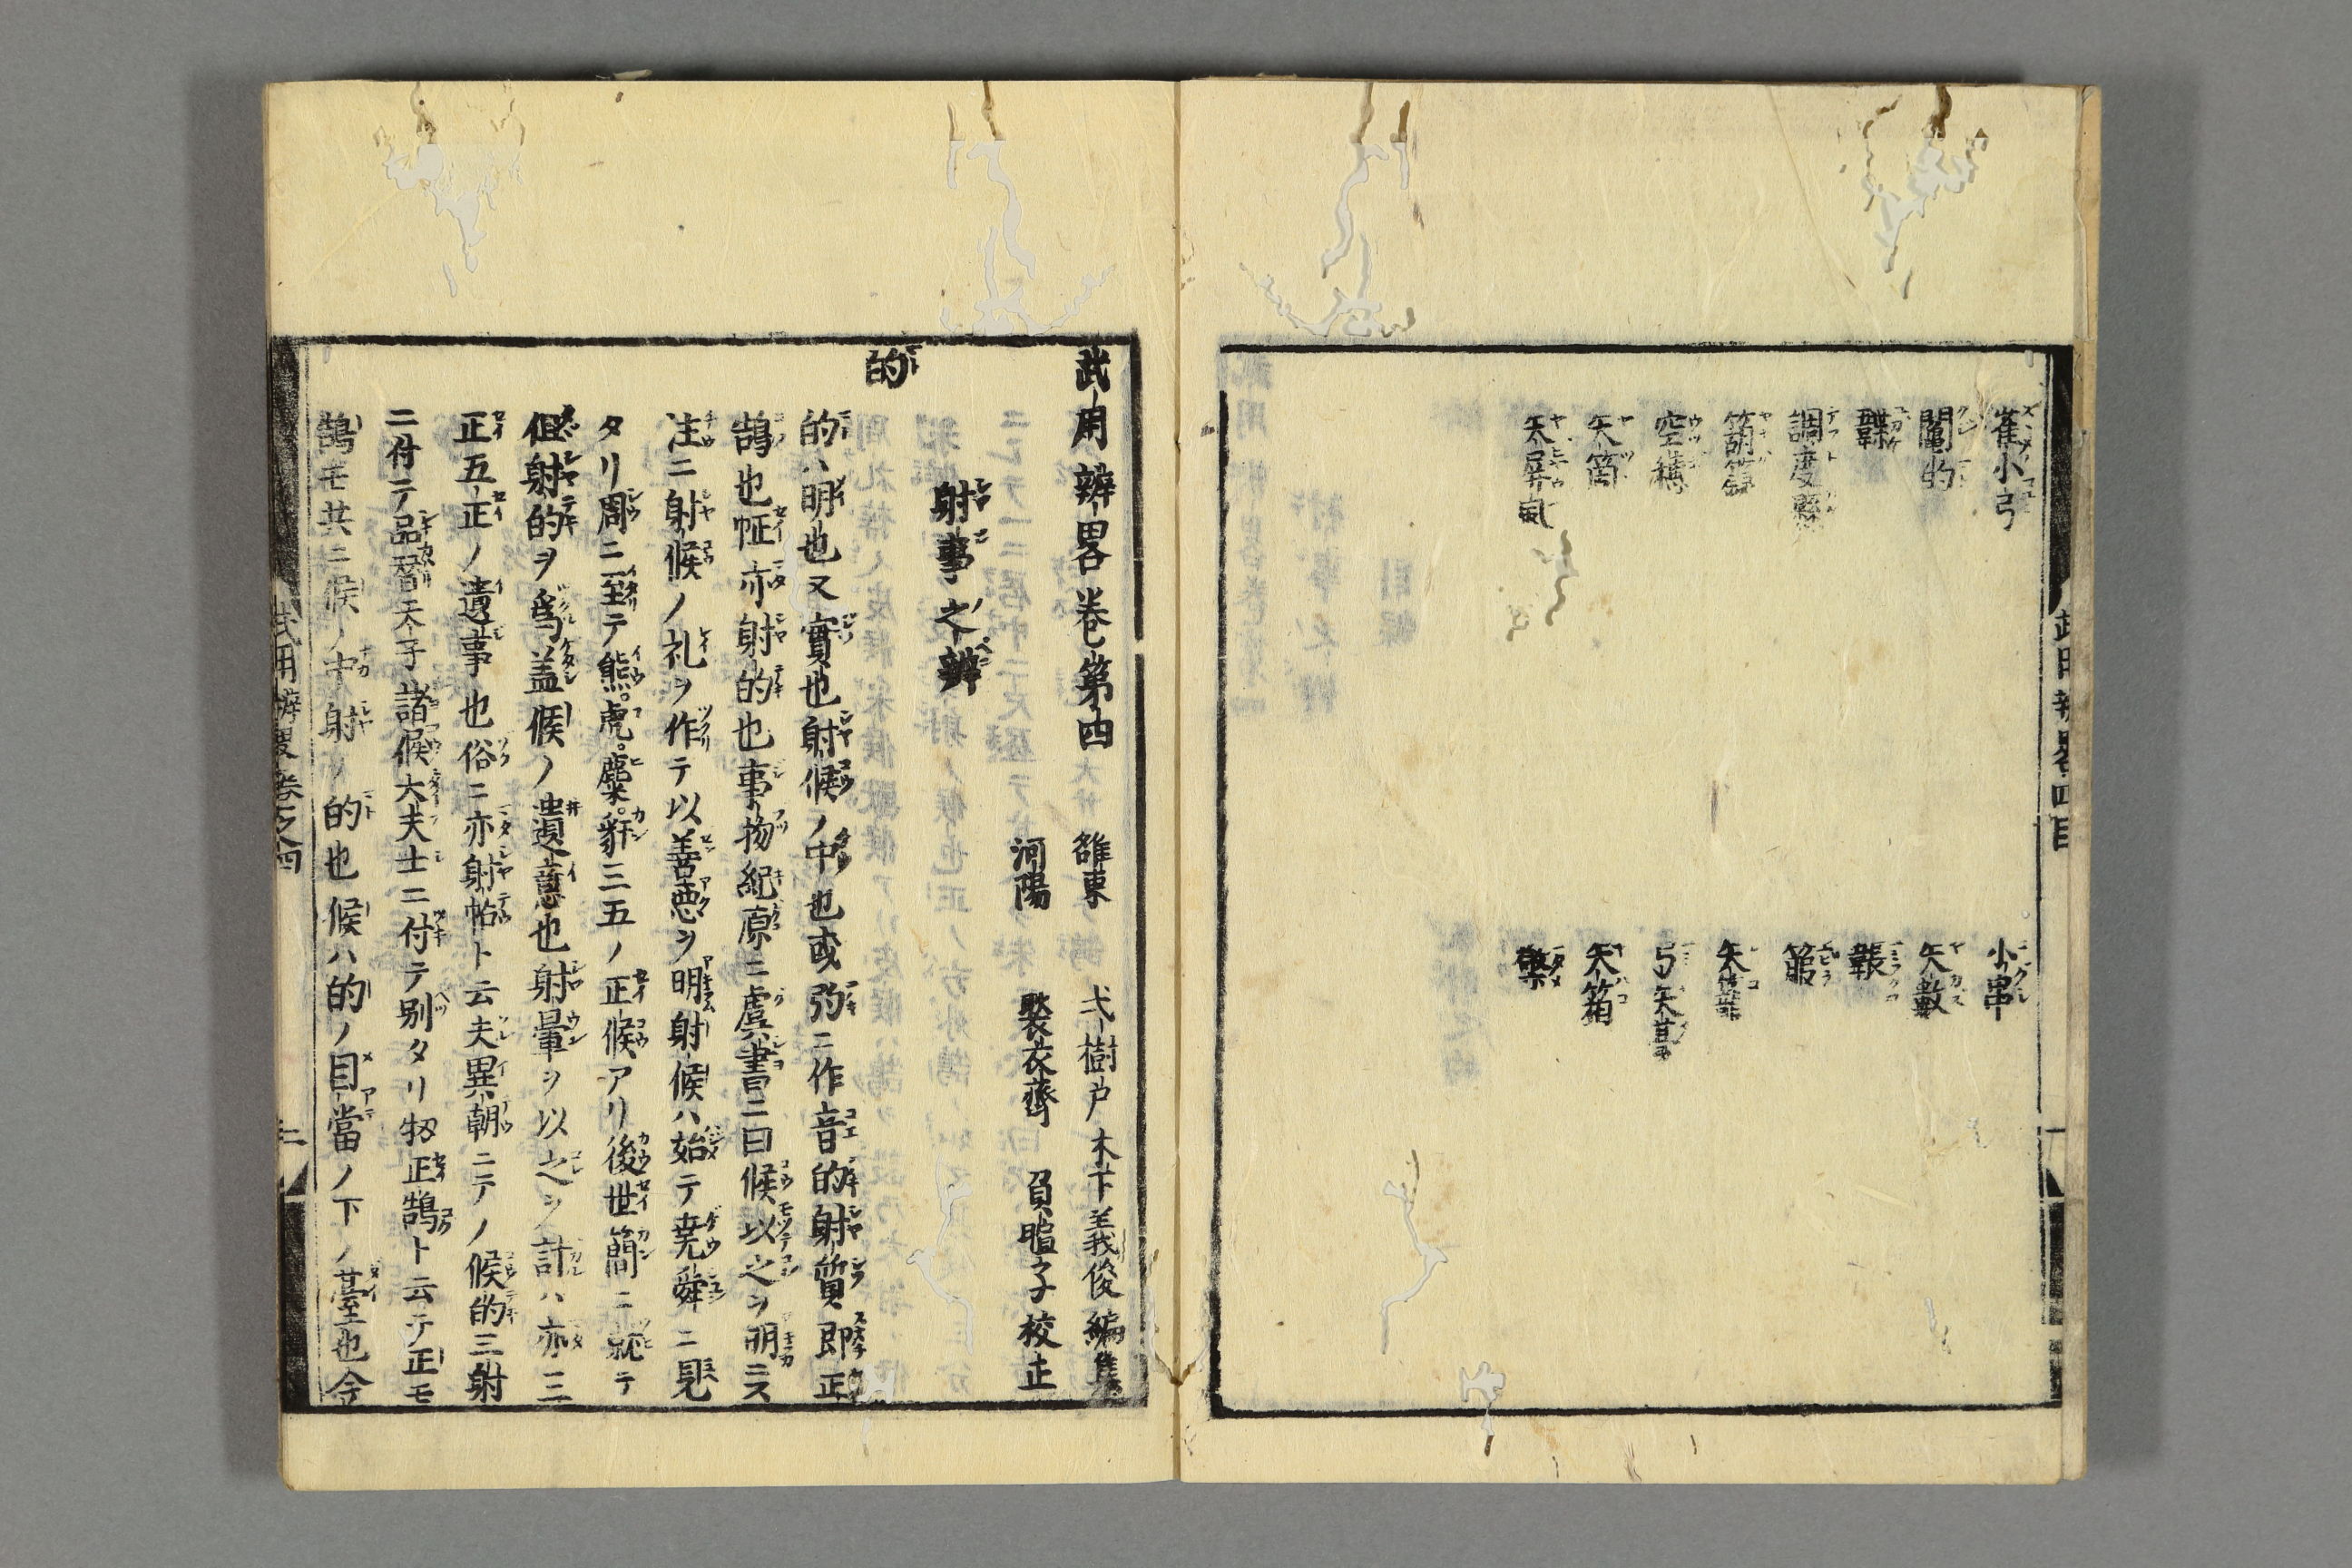 雀小弓
小串
鬮的
矢數
韘
韔
調度懸
箙
箶簶
矢籠
空穂
弓矢臺
矢筒
矢箱
矢屏風
檠
武用辨畧巻第四
雒東 弌樹戸木下義俊編集
河陽 褧衣齊 負暄子校正
射事之辨
的
的ハ明也又實也射候ノ中也或㢩ニ作音的射質即正
鵠也怔亦射的也事物紀原ニ虞書ニ曰候以之ヲ明ニス
注ニ射候ノ礼ヲ作テ以善悪ヲ明射候ハ始テ尭舜ニ見
タリ周ニ至テ熊。虎。麋。豻三五ノ正候アリ後世簡ニ就テ
但射的ヲ為盖候ノ遺意也射暈ヲ以之ヲ計ハ亦三
正五正ノ遺事也俗ニ亦射帖ト云夫異朝ニテノ候的三射
ニ付テ品替天子諸候大夫士ニ付テ別タリ扨正鵠ト云テ正モ
鵠モ共ニ候ノ中射ノ的也候ハ的ノ目當ノ下ノ臺也今
武用辨畧巻之四